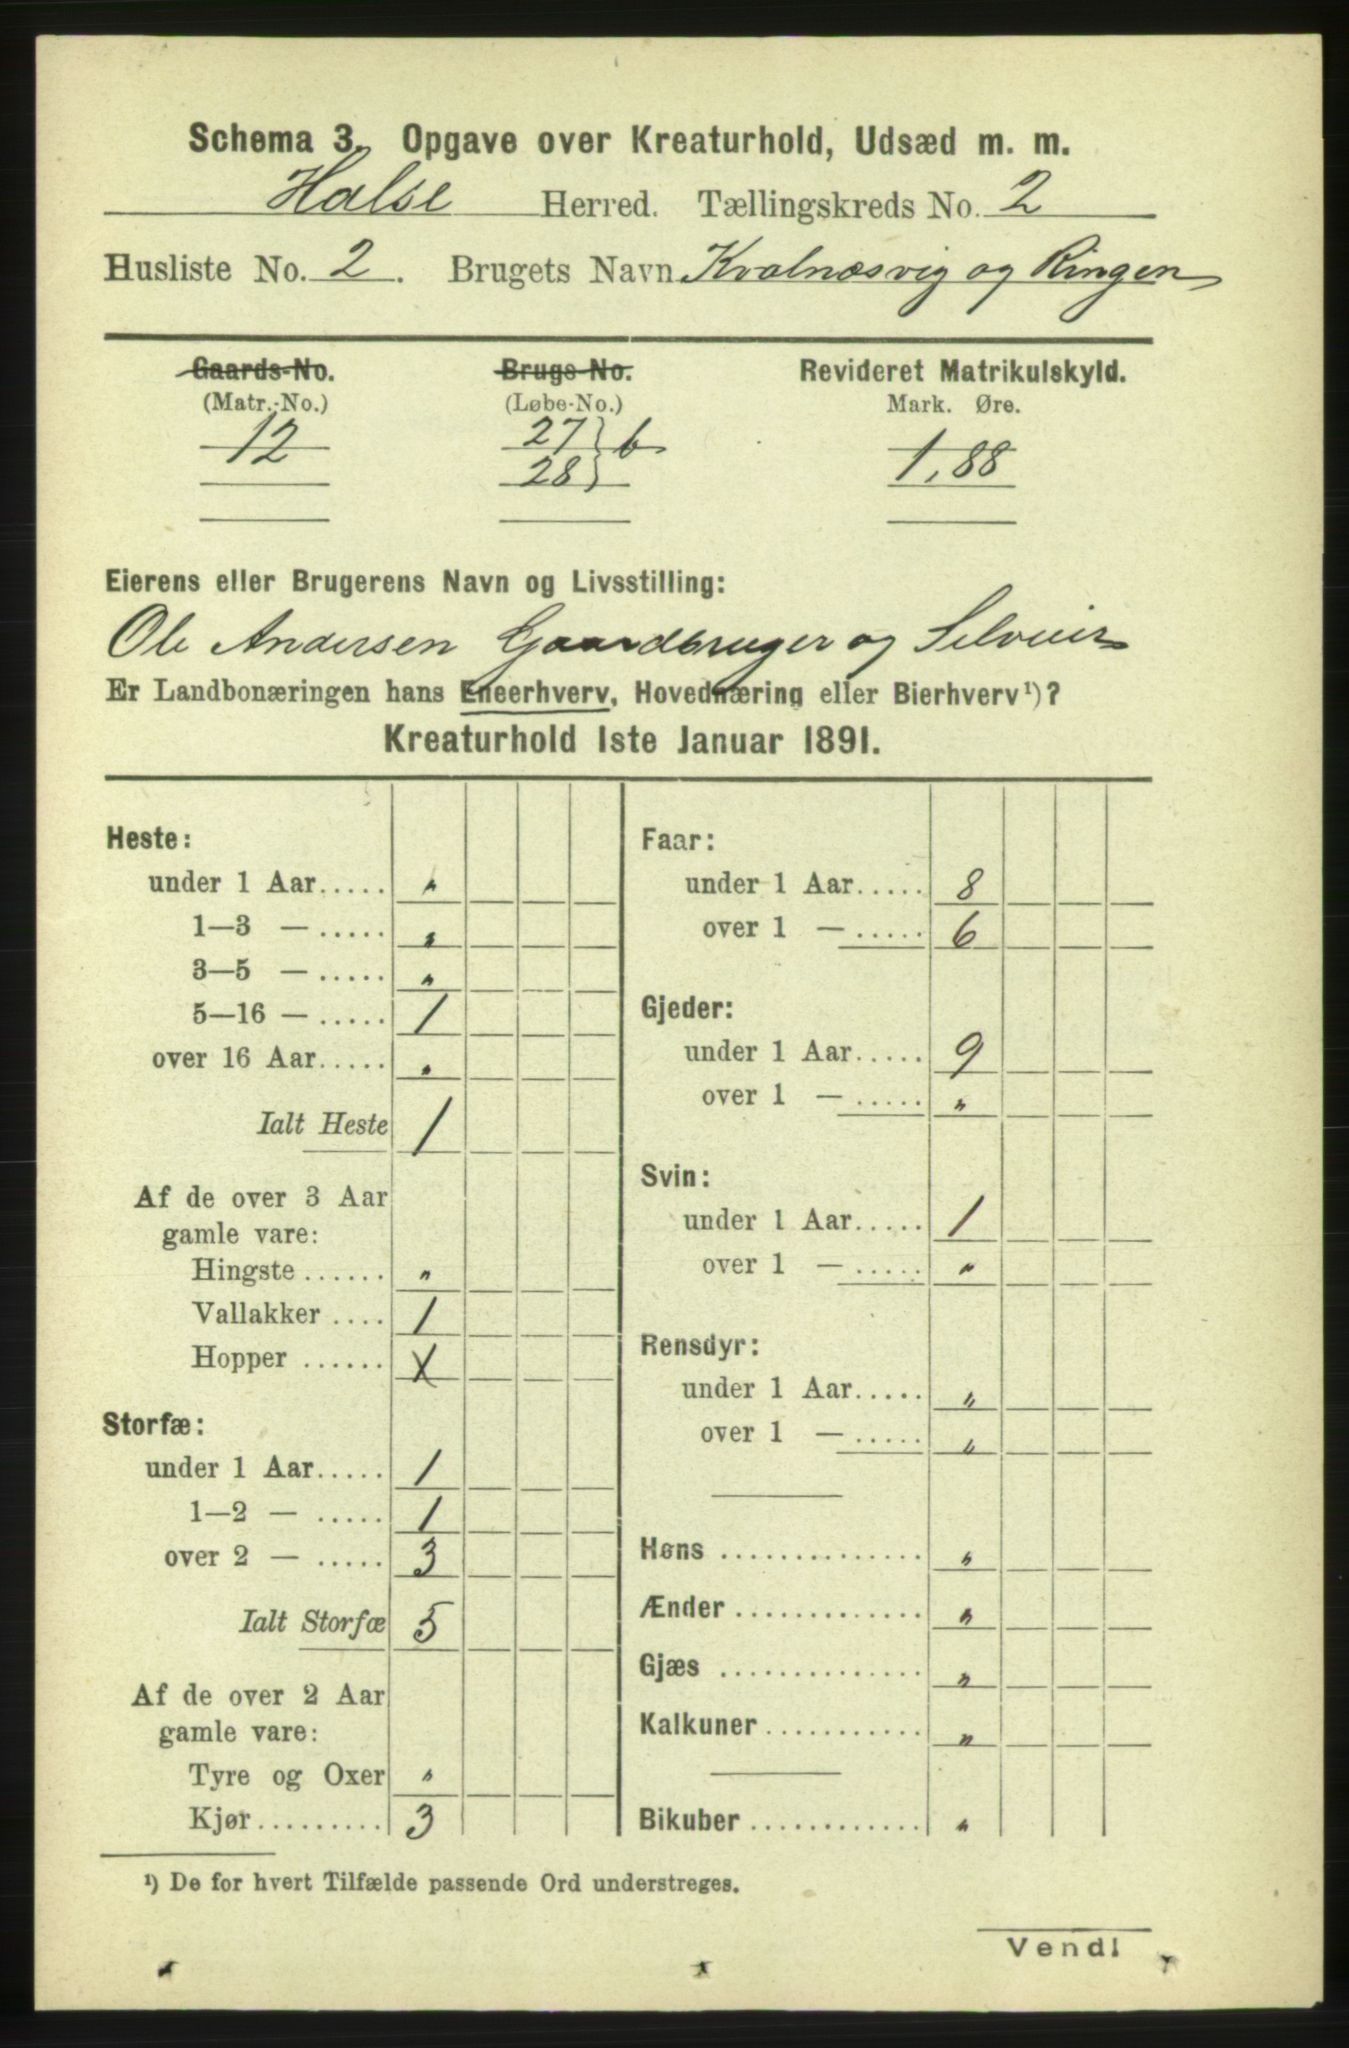 Schema 3. Opgave over Kreaturhold, Udsæd m. m.
Halse Herred. Tællingskreds No. 2
Husliste No. 2. Brugets Navn Kvalnæsvig og Ringen
Gaards-No. Brugs-No. Revideret Matrikulskyld.
(Matr.-No.) (Løbe-No.) Mark. Øre.
12 27 } b 1,88
28 }
Eierens eller Brugerens Navn og Livsstilling:
Ole Andersen Gaardbruger og Selveier
Er Landbonæringen hans Eneerhverv, Hovednæring eller Bierhverv¹)?
Kreaturhold 1ste Januar 1891.
Heste:
under 1 Aar..... "
1—3 — ..... "
3—5 — ..... "
5—16 — ..... 1
over 16 Aar..... "
Ialt Heste 1
Af de over 3 Aar
gamle vare:
Hingste ...... "
Vallakker .... 1
Hopper ...... X
Storfæ:
under 1 Aar..... 1
1—2 — ..... 1
over 2 — ..... 3
Ialt Storfæ 5
Af de over 2 Aar
gamle vare:
Tyre og Oxer "
Kjør......... 3
Faar:
under 1 Aar..... 8
over 1 — ..... 6
Gjeder:
under 1 Aar..... 9
over 1 — ..... "
Svin:
under 1 Aar..... 1
over 1 — ..... "
Rensdyr:
under 1 Aar..... "
over 1 — ..... "
Høns .............. "
Ænder ............. "
Gjæs .............. "
Kalkuner ........... "
Bikuber ............ "
¹) De for hvert Tilfælde passende Ord understreges.
Vend!